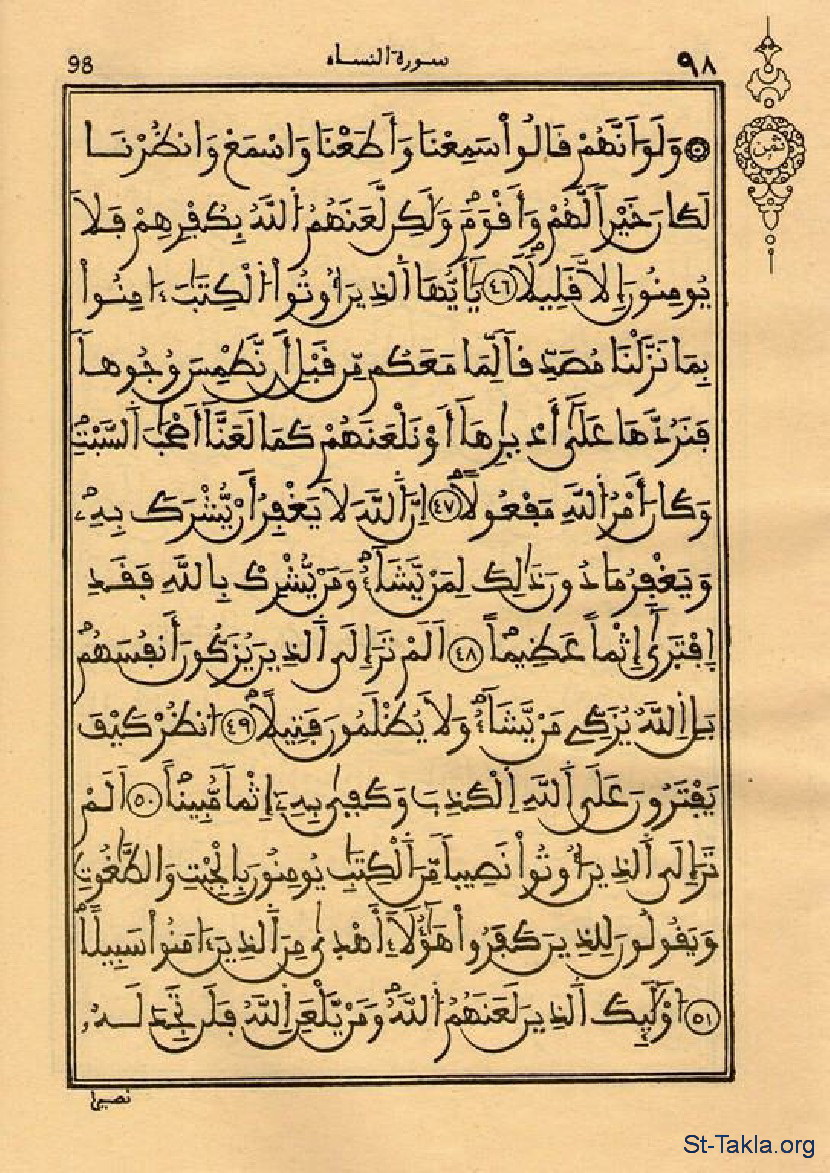 98 سورة النساء ٩٨
ثمن
وَلَوَ اَنَّهُمْ قَالُواْ سَمِعْنَا وَأَطَعْنَا وَاسْمَعْ وَانظُرْنَا
لَكَانَ خَيْراً لَّهُمْ وَأَقْوَمَ وَلَٰكِن لَّعَنَهُمُ اُللَّهُ بِكُفْرِهِمْ فَلَا
يُومِنُونَ إِلَّا قَلِيلاً ٤٦ يَٰأَيُّهَا اَلذِينَ أُوتُواْ اُلْكِتَٰبَ ءَامِنُواْ
بِمَا نَزَّلْنَا مُصَدِّقاً لِّمَا مَعَكُم مِّن قَبْلِ أَن نَّطْمِسَ وُجُوهاً
فَنَرُدَّهَا عَلَىٰ أَدْبَٰرِهَا أَوْ نَلْعَنَهُمْ كَمَا لَعَنَّا أَصْحَٰبَ اَلسَّبْتِ
وَكَانَ أَمْرُ اُللَّهِ مَفْعُولاً ٤٧ اِنَّ اَللَّهَ لَا يَغْفِرُ أَنْ يُّشْرَكَ بِهِۦ
وَيَغْفِرُ مَا دُونَ ذَٰلِكَ لِمَنْ يَّشَاءُ وَمَنْ يُّشْرِكْ بِاللَّهِ فَقَدِ
اِفْتَرَىٰ إِثْماً عَظِيماً ٤٨ اَلَمْ تَرَ إِلَى اَلذِينَ يُزَكُّونَ أَنفُسَهُم
بَلِ اِللَّهُ يُزَكِّے مَنْ يَّشَاءُ وَلَا يُظْلَمُونَ فَتِيلاً ٤٩ اُنظُرْ كَيْفَ
يَفْتَرُونَ عَلَى اَللَّهِ اِلْكَذِبَ وَكَفَىٰ بِهِۦ إِثْماً مُّبِيناً ٥٠ اَلَمْ
تَرَ إِلَى اَلذِينَ أُوتُواْ نَصِيباً مِّنَ اَلْكِتَٰبِ يُومِنُونَ بِالْجِبْتِ وَالطَّٰغُوتِ
وَيَقُولُونَ لِلذِينَ كَفَرُواْ هَٰؤُلَاءِ أَهْدَىٰ مِنَ اَلذِينَ ءَامَنُواْ سَبِيلاً
٥١ اُوْلَٰئِكَ اَلذِينَ لَعَنَهُمُ اُللَّهُ وَمَنْ يَّلْعَنِ اِللَّهُ فَلَن تَجِدَ لَهُۥ
نصيرا
St-Takla.org